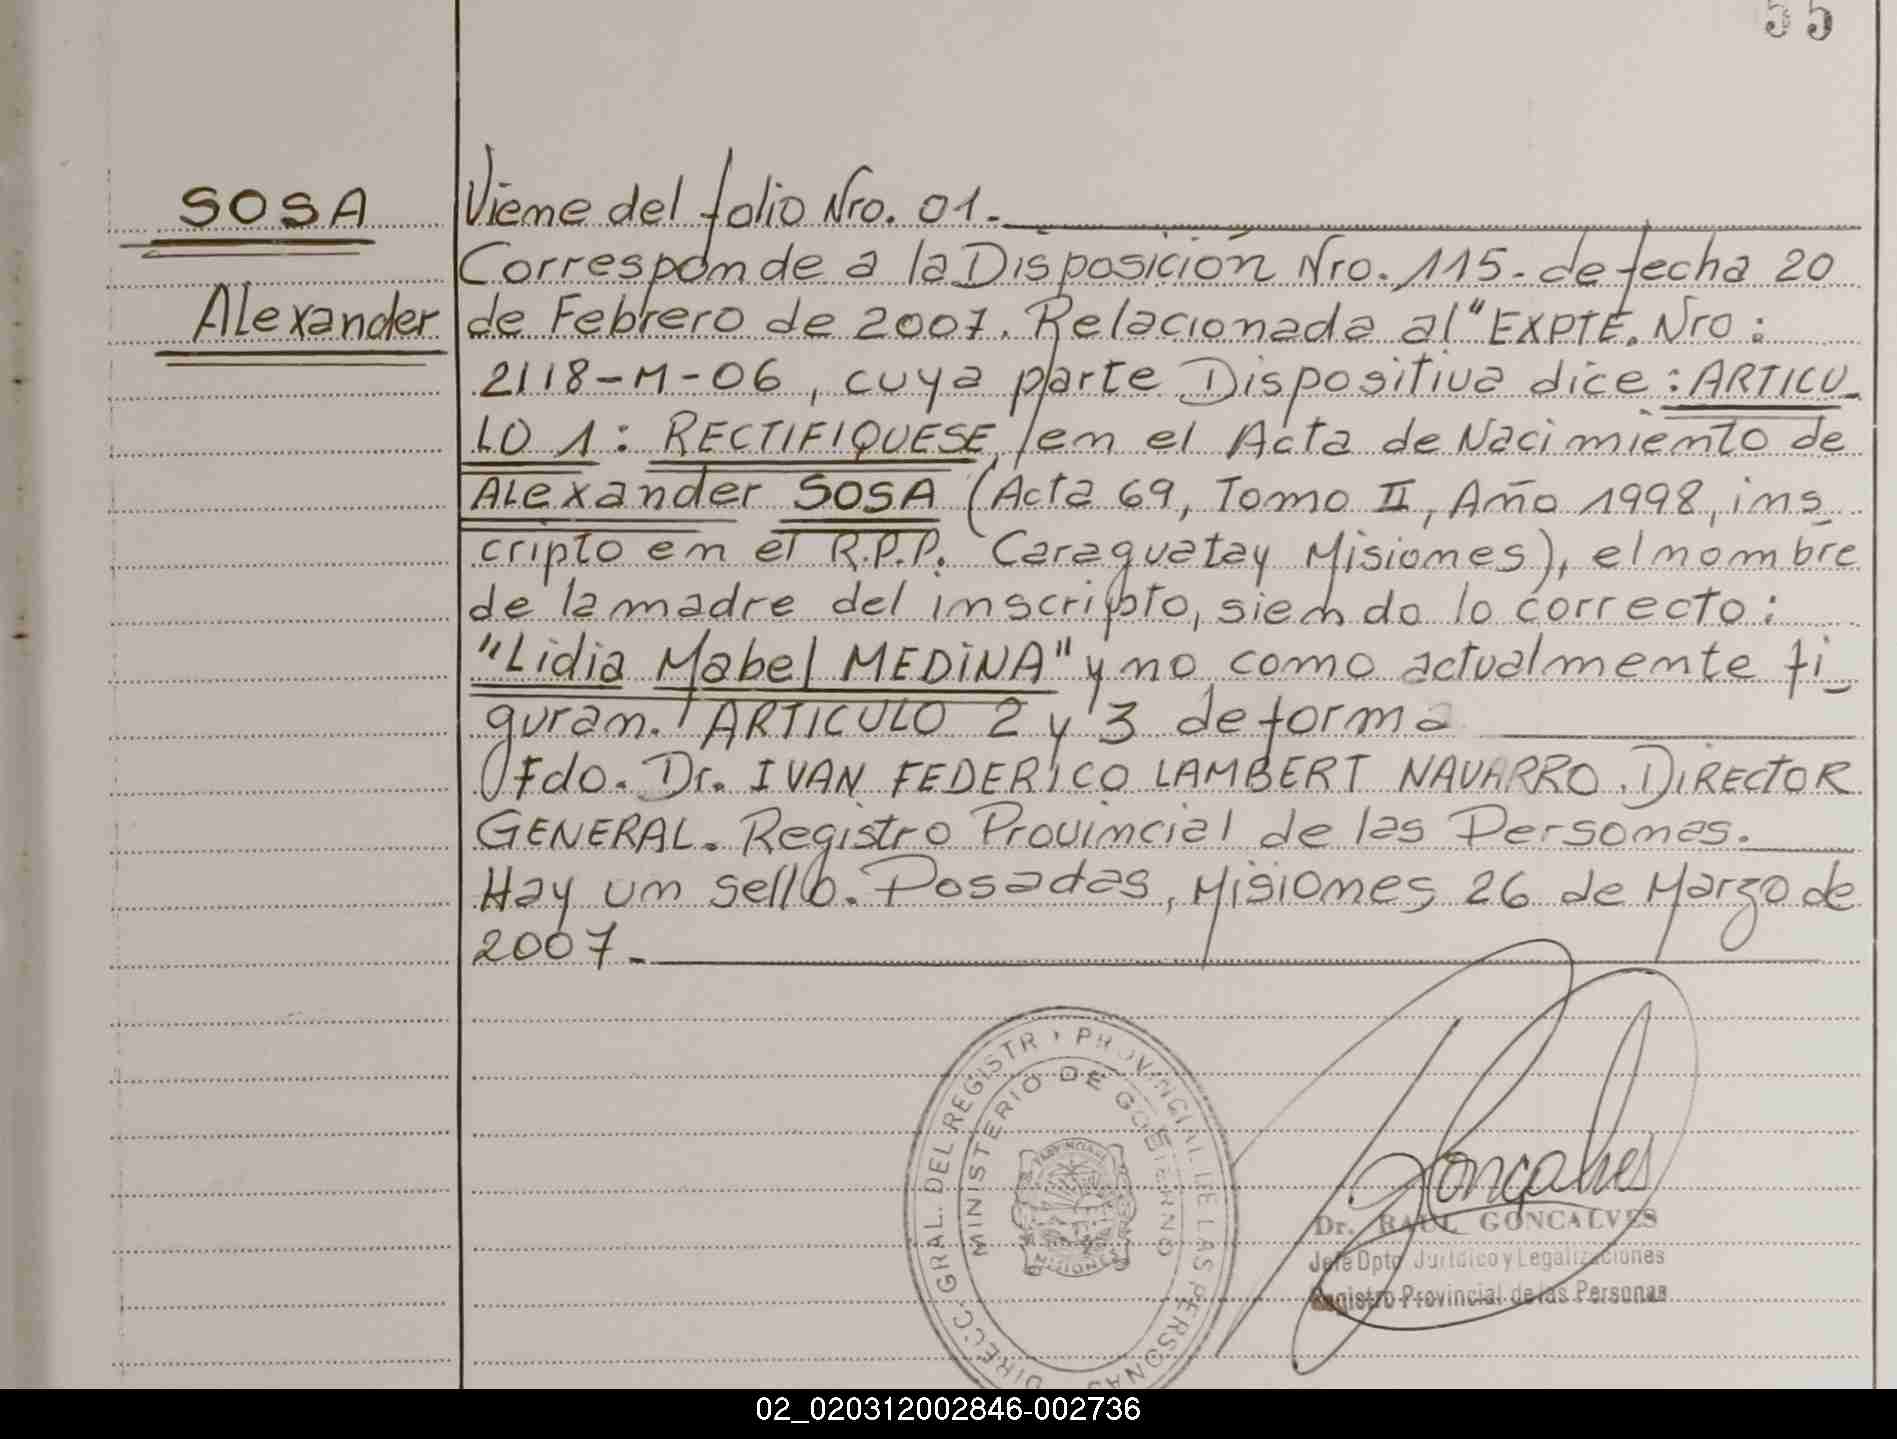 55
SOSA
Alexander
Viene del folio Nro. 01.-
Corresponde a la Disposición Nro. 115. de fecha 20
de Febrero de 2007. Relacionada al "EXPTE. Nro:
2118-M-06, cuya parte Dispositiva dice: ARTICU-
LO 1: RECTIFIQUESE, en el Acta de Nacimiento de
Alexander SOSA (Acta 69, Tomo II, Año 1998, ins-
cripto en el R.P.P. Caraguatay Misiones), el nombre
de la madre del inscripto, siendo lo correcto:
"Lidia Mabel MEDINA" y no como actualmente fi-
guran. ARTICULO 2 y 3 de forma
Fdo. Dr. IVAN FEDERICO LAMBERT NAVARRO. DIRECTOR
GENERAL. Registro Provincial de las Personas.
Hay un sello. Posadas, Misiones, 26 de Marzo de
2007.-
DIRECC. GRAL. DEL REGISTR PROVINCIAL DE LAS PERSONAS
MINISTERIO DE GOBIERNO
PROVINCIA
MISIONES
Gonçalves
Dr. RAUL GONCALVES
Jefe Dpto Jurídico y Legalizaciones
Registro Provincial de las Personas
02_020312002846-002736